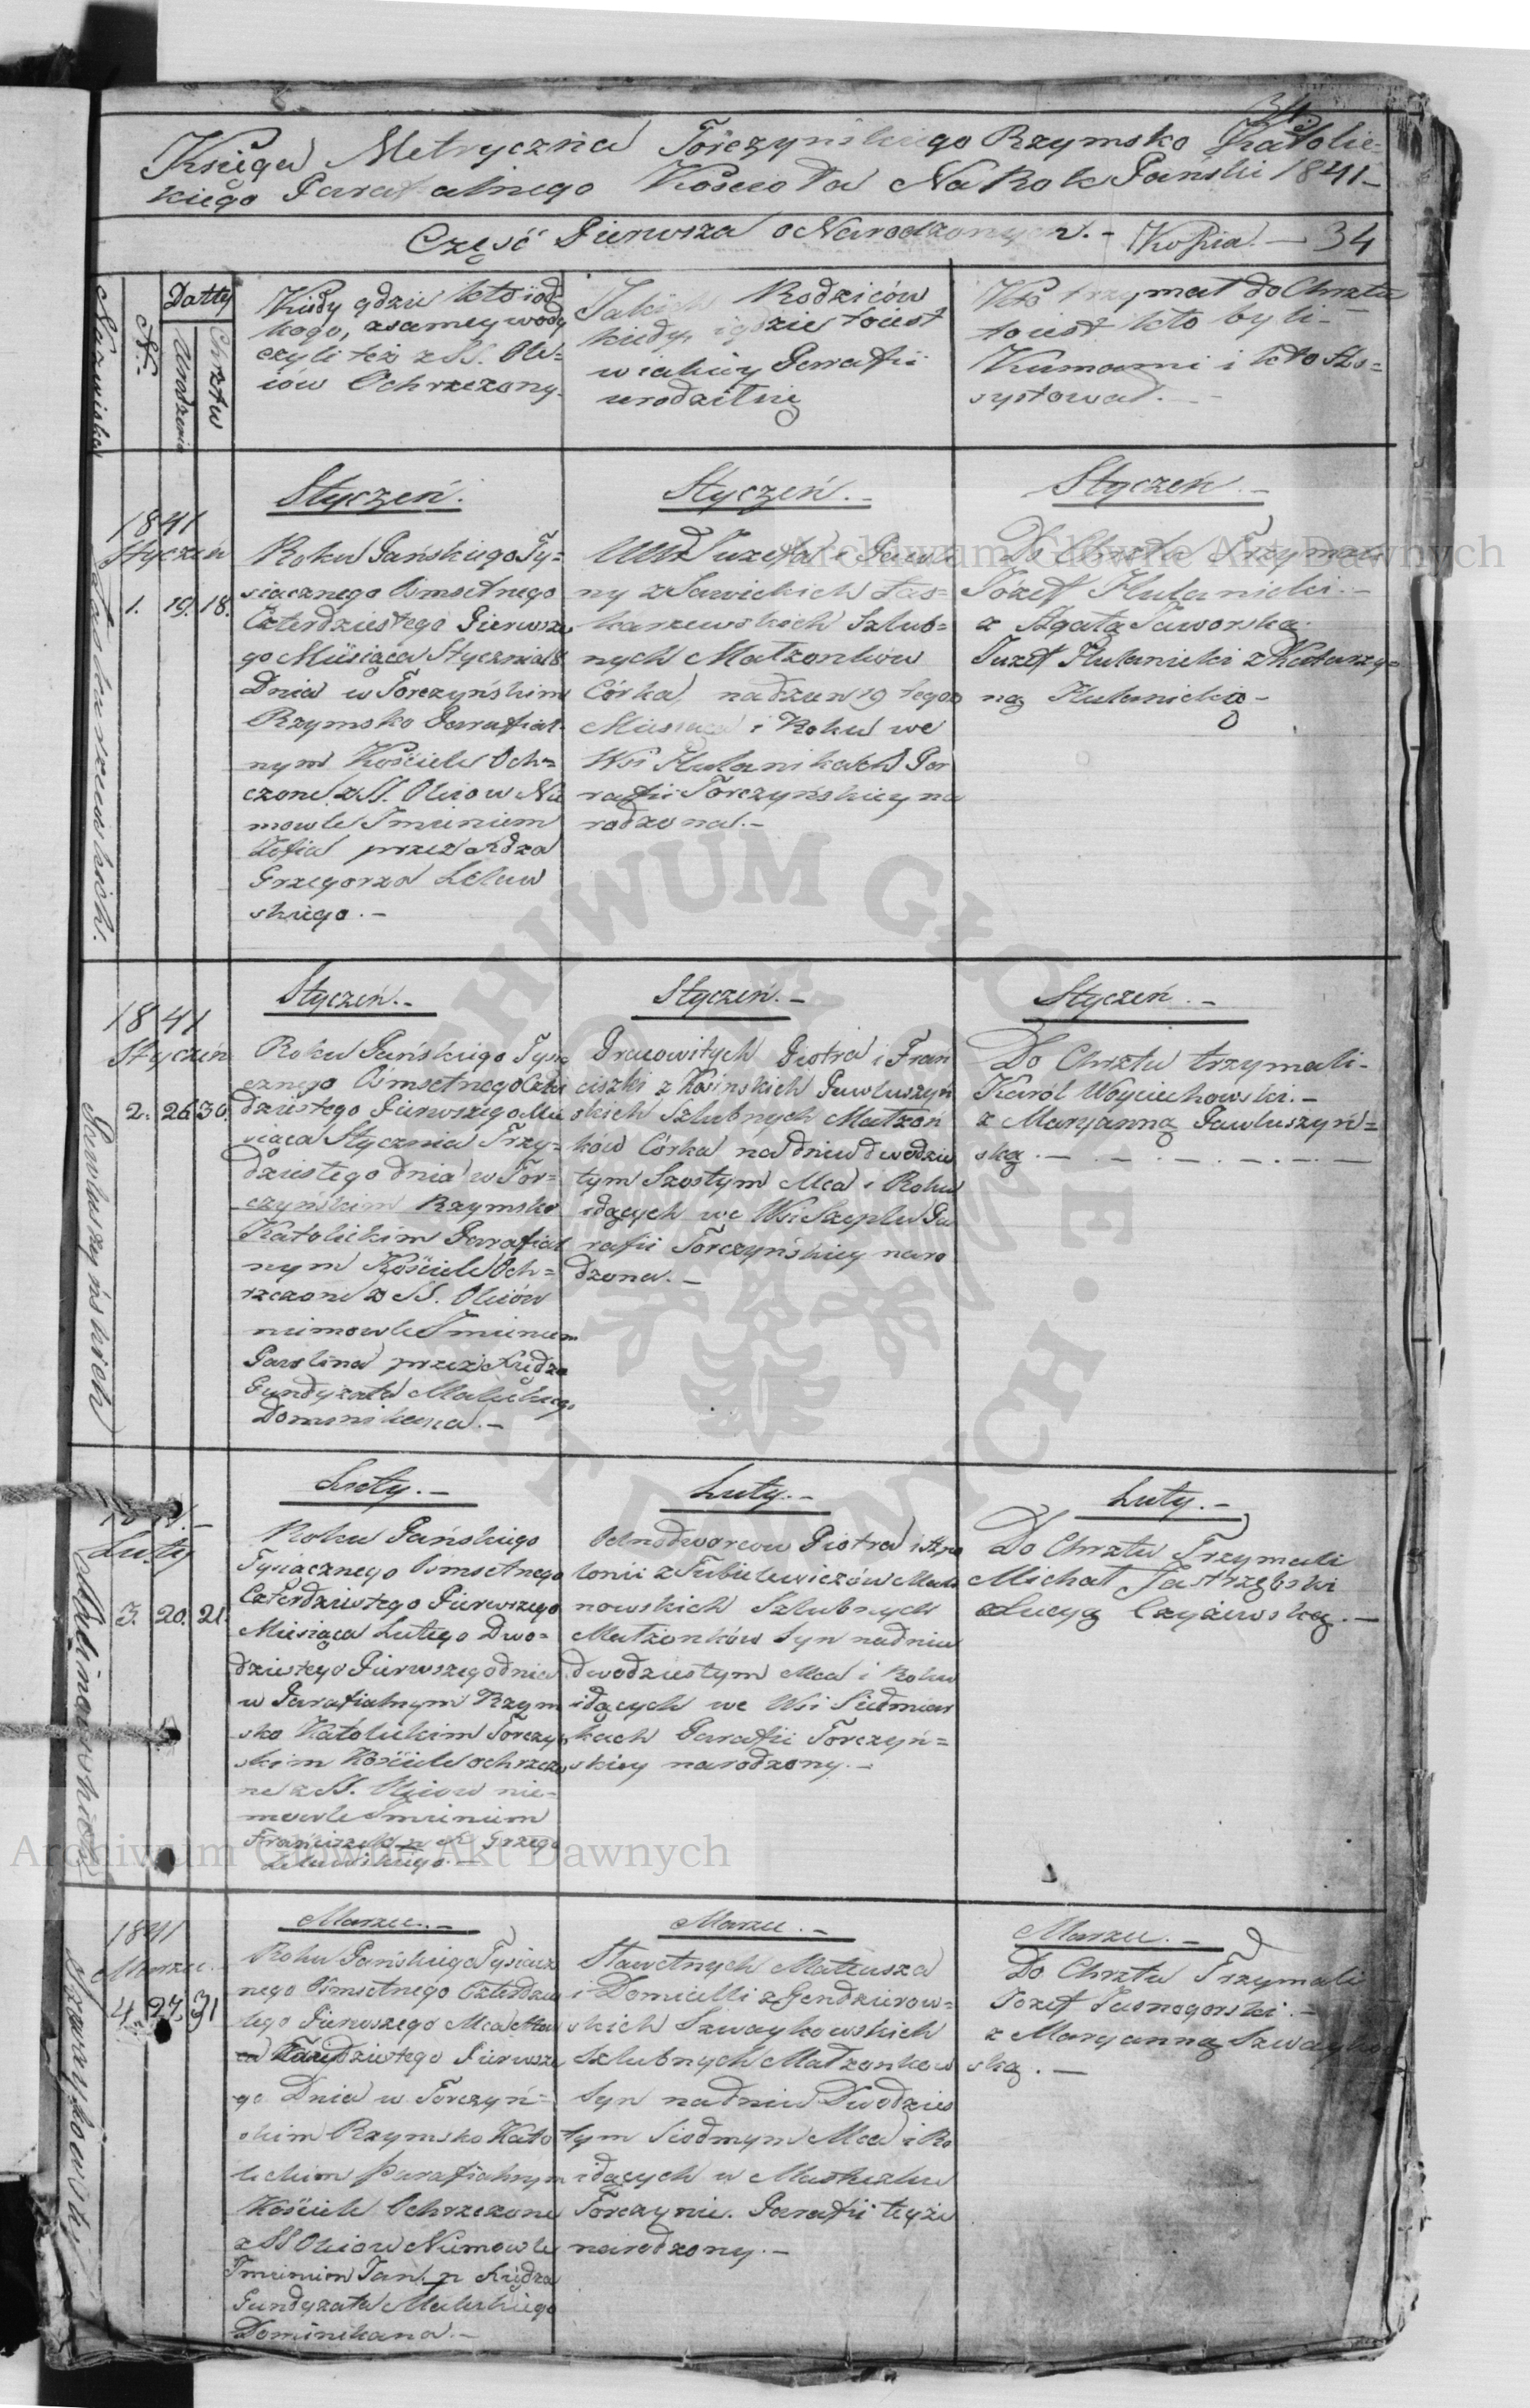 34.
Księga Metryczna Torczyńskiego Rzymsko Katolic=
kiego Parafialnego Kościoła Na Rok Pański 1841 –
Część Pierwsza o Narodzonych. – Kopia. – 34
Nazwiska
N.
Datty
Urodzenia
Chrztu
Kiedy gdzie kto i od
kogo, z samey wody
czyli też z SS. Ole=
iów Ochrzczony.
Jakich Rodziców
kiedy i gdzie to iest
w iakiey Parafii
urodził się
Kto trzymał do Chrztu
to iest kto byli
Kumami i kto Asy=
systował. –
Styczeń.
Styczeń. –
Styczeń. –
1841
Styczeń
1. 19. 18.
Roku Pańskiego Ty=
siącznego Osmsetnego
Czterdziestego Pierwsze
go Miesiąca Stycznia 18
Dnia w Torczyńskim
Rzymsko Parafial
nym Kościele Och=
czone z SS. Oleiow Nie
mowle Imieniem
Zofia przez Xdza
Grzegorza Lelaw
skiego. –
Juzefa i
ny z Sawickich
Szlub=
nych Małżonków
Córka, na dzen 19 tegoż
Miesiąca i Roku we
Wsi Hulanikach Par
rafii Torczyńskiey na
rodzona. –
Do Chrztu Trzymali
Józef Hulanicki. –
z Agatą Jaworską.
Juzef Hulanicki z Katarzy=
ną Hulanicką –
Styczeń. –
Styczeń. –
Styczeń. –
1841
Styczeń
2. 26 30.
Pawluszyńskich
Roku Pańskiego Tysią
cznego Osmsetnego Czter
dziestego Pierwszego Mie
siąca Stycznia Trzy=
dziestego dnia w Tor=
czyńskim Rzymsko
Katolickim Parafial
nym Kościele Och=
rzczone z SS. Oleiów
niemowle Imieniem
Paulina przez Xiędza
Gundyzata Maleckiego
Dominikana. –
Pracowitych Piotra i Fran
ciszki z Kosinskich Pawluszyń
skich Szlubnych Małżon
ków Córka na dniu dwudzies
tym Szostym Mca i Roku
idących we Wsi Szeplu Pa
rafii Torczyńskiey naro
dzona. –
Do Chrztu trzymali –
Karól Woyciechowski. –
z Maryanną Pawluszyń=
ską. –
Luty. –
Luty. –
Luty. –
Luty
3. 20. 21.
Malinowskich
Roku Pańskiego
Tysiącznego Osmsetnego
Czterdziestego Pierwszego
Miesiąca Lutego Dwu=
dziestego Pierwszego dnia
w Parafialnym Rzym
sko Katolickim Torczyń
skim Kościele ochrzczo
ne z SS. Oleiow nie=
mowle Imieniem
Franciszek p. X. Grzego
Lelawskiego. –
Odnodworcow Piotra i Apo
lonii z Tubielewiczów Mali
nowskich Szlubnych
Małżonków Syn na dniu
dwudziestym Mca i Roku
idących we Wsi Siedmiar
kach Parafii Torczyń=
skiey narodzony. –
Do Chrztu Trzymali
Michał Jastrzębski
z Lucyą Czyżewską. –
Marzec. –
Marzec. –
Marzec. –
1841
Marzec.
4. 27. 31
Szwaykowski
Roku Pańskiego Tysiącz
nego Osmsetnego Czterdzies
tego Pierwszego Mca Mar
ca Trzydziestego Pierwsze
go Dnia w Torczyń=
skim Rzymsko Kato
lickim Parafialnym
Kościele Ochrzczone
z SS Oleiow Niemowle
Imieniem Jan. p. Xiędza
Gundyzata Maleckiego
Dominikana. –
Sławetnych Mateusza
i Domicelli z Gendzierow=
skich Szwaykowskich
Szlubnych Małżonkow
Syn na dniu Dwudzies
tym Siodmym Mca i Ro
idących w Miasteczku
Torczynie. Parafii teyże
narodzony. –
Do Chrztu Trzymali
Jozef Jasnogorski. –
z Maryanną Szwayko
ską. –
Archiwum Główne Akt Dawnych
Archiwum Główne Akt Dawnych
ARCHIWUM GŁÓWNE AKT DAWNYCH